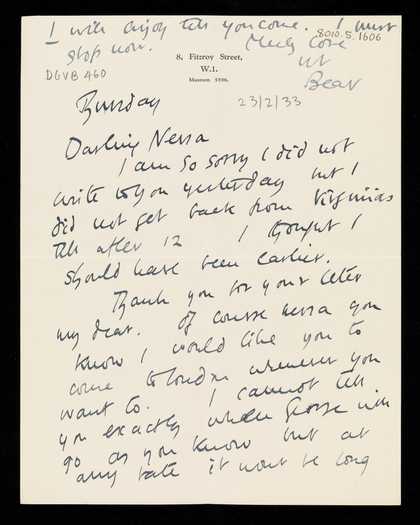 I will enjoy till you come. I must
stop now. Much love
Bear
8010.5.1606
DGVB 460
8, Fitzroy Street,
W.1.
Museum
23/2/33
Thursday
Darling Nessa
I am so sorry I did not
write to you yesterday but I
did not get back from Virginias
till after 12 I thought I
should have been earlier.
Thank you for your letter
my dear. Of course nessa you
know I would like you to
come to london whenever you
want to. I cannot tell
you exactly when George will
go as you know but at
any rate it wont be long